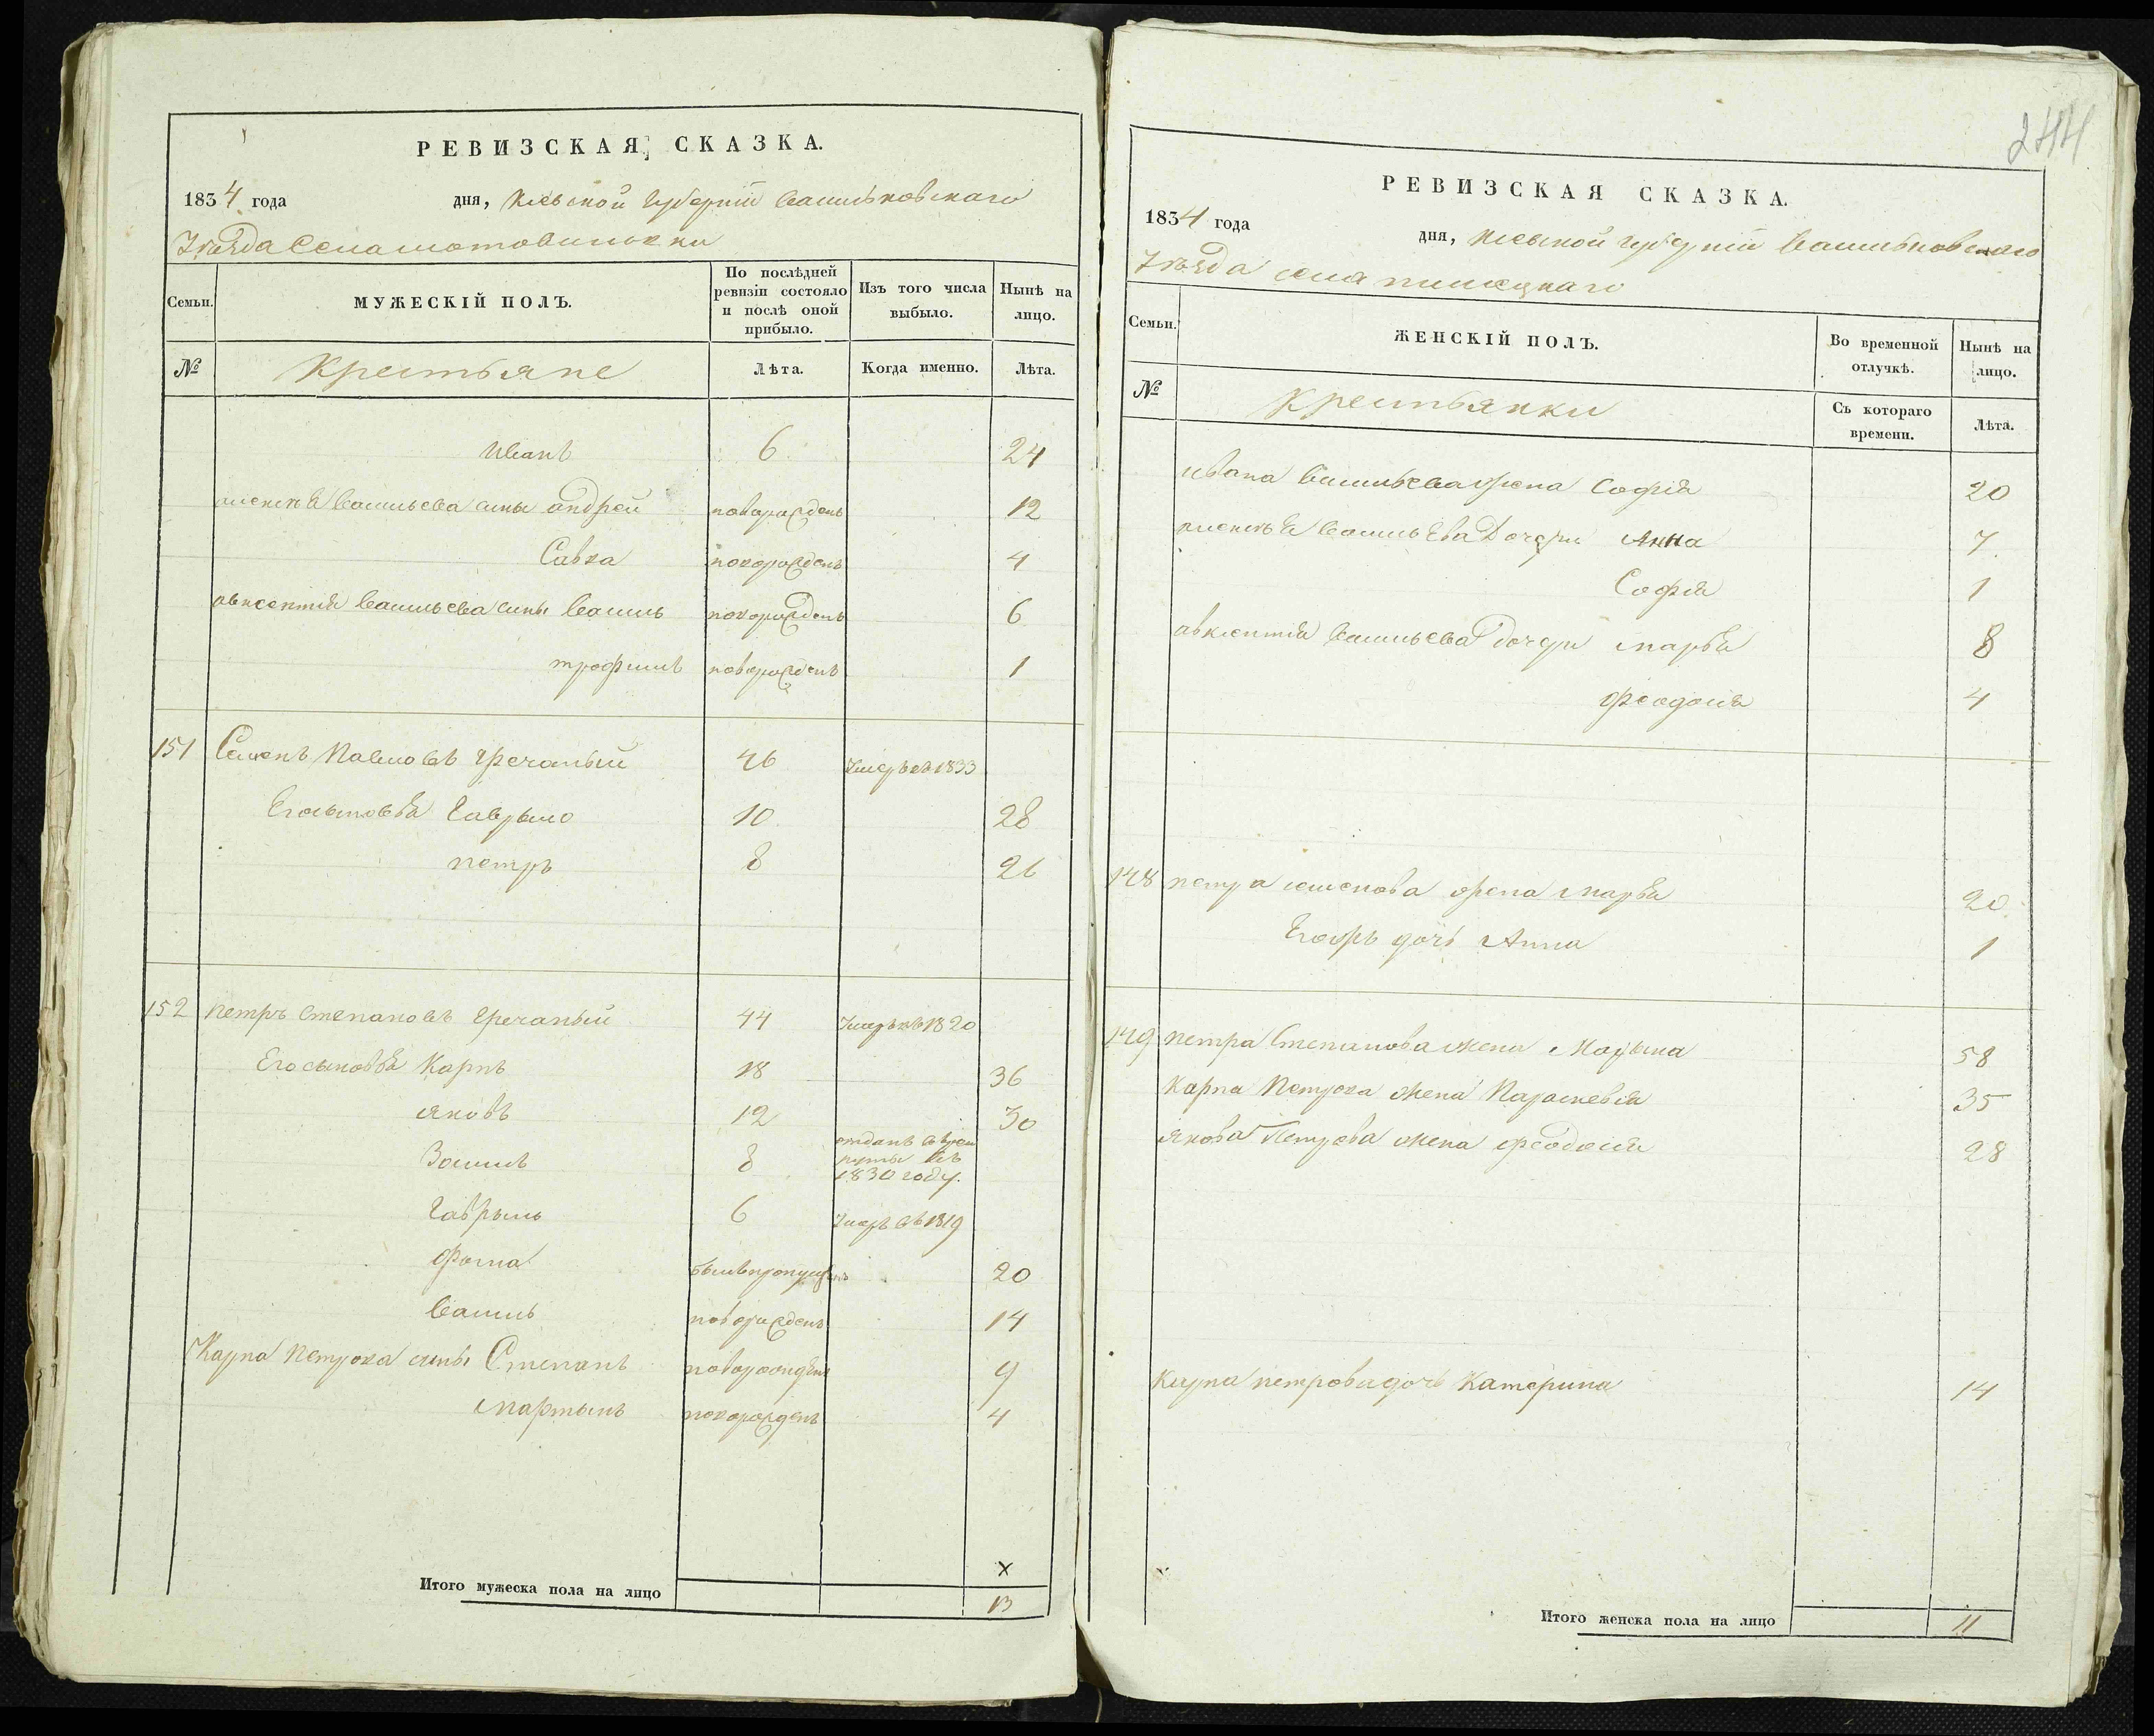 РЕВИЗСКАЯ СКАЗКА.
1834 года дня, Киевской Губерніи Васильковскаго
Уѣзда Села Мотовиловки
Семьи. МУЖЕСКІЙ ПОЛЪ. По послѣдней ревизіи состояло и послѣ оной прибыло. Изъ того числа выбыло. Нынѣ на лицо.
№ Крестьяне Лѣта. Когда именно. Лѣта.
Иванъ 6 24
Алексѣя Васильева сыны Андрей новорожденъ 12
Савка новорожденъ 4
Авксентія Васильева сыны Василь новорожденъ 6
Трофимъ новорожденъ 1
151 Семенъ Павловъ Гречаный 46 Умеръ въ 1833
Его сыновья Гаврыло 10 28
Петръ 8 26
152 Петръ Степановъ Гречаный 44 Умеръ въ 1820
Его сыновья Карпъ 18 36
Яковъ 12 30
8 отданъ въ рек
руты въ
1830 году.
Гаврыло 6 Умеръ въ 1819
Фома былъ пропущенъ 20
Василь новорожденъ 14
Карпа Петрова сыны Степанъ новорожденъ 9
Мартынъ новорожденъ 4
х
Итого мужеска пола на лицо 13
244
РЕВИЗСКАЯ СКАЗКА.
1834 года дня, Киевской Губерніи Васильковскаго
Уѣзда села
Семьи. ЖЕНСКІЙ ПОЛЪ. Во временной отлучкѣ. Нынѣ на лицо.
№ Крестьянки Съ котораго времени. Лѣта.
Ивана Васильева жена Софія 20
Алексѣя Васильева Дочери Анна 7
Софія 1
Авксентія Васильева дочери Марья 8
Феодосія 4
148 Петра Семенова жена Марья 20
Его дочь Анна 1
149 Петра Степанова жена Марына 58
Карпа Петрова жена Параскевія 35
Якова Петрова жена Феодосія 28
Карпа Петрова дочь Катерина 14
Итого женска пола на лицо 11